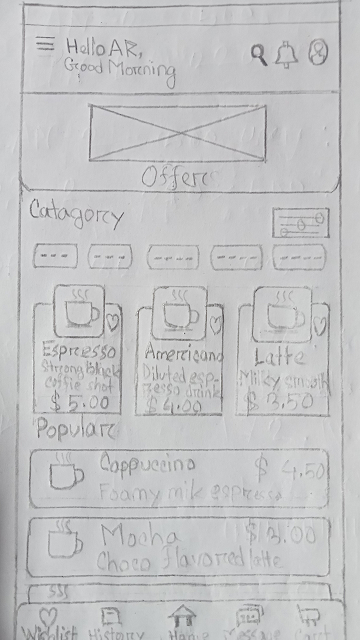 Hello AR,
Good Morning
Offers
Catagory
Espresso
Strong black
coffie shot
$ 5.00
Americano
Diluted esp-
resso drink
$ 4.00
Latte
Milky smooth
$ 3.50
Popular
Cappuccino $ 4.50
Foamy milk espresso
Mocha $ 3.00
Choco flavored latte
Wishlist History Home Message Cart